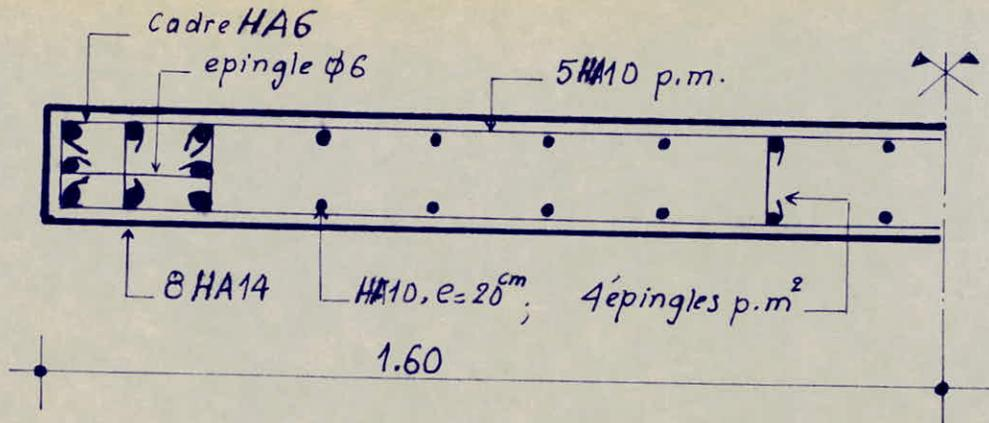 Cadre HA6
epingle ϕ6
5HA10 p.m.
8HA14
HA10, e=20cm;
4épingles p.m²
1.60